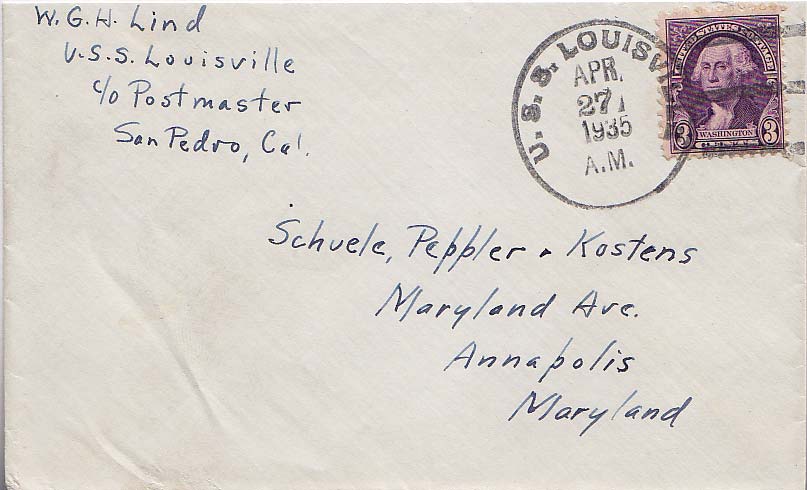 W.G.H. Lind
U.S.S. Louisville
c/o Postmaster
San Pedro, Cal.
U.S.S. LOUISVI
APR.
27
1935
A.M.
UNITED STATES POSTAGE
3 WASHINGTON 3
Schuele, Peppler & Kostens
Maryland Ave.
Annapolis
Maryland